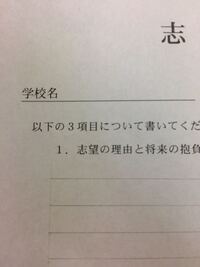 志
学校名
以下の3項目について書いてくだ
1．志望の理由と将来の抱負